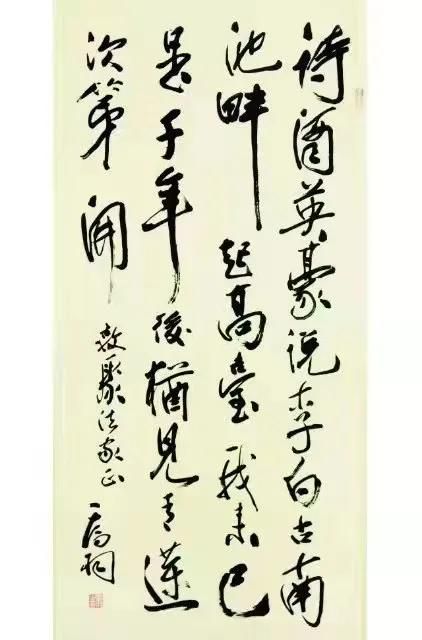 詩酒英豪說李白古南
池畔起高臺我来已
是千年後猶見青蓮
次第開
法家正